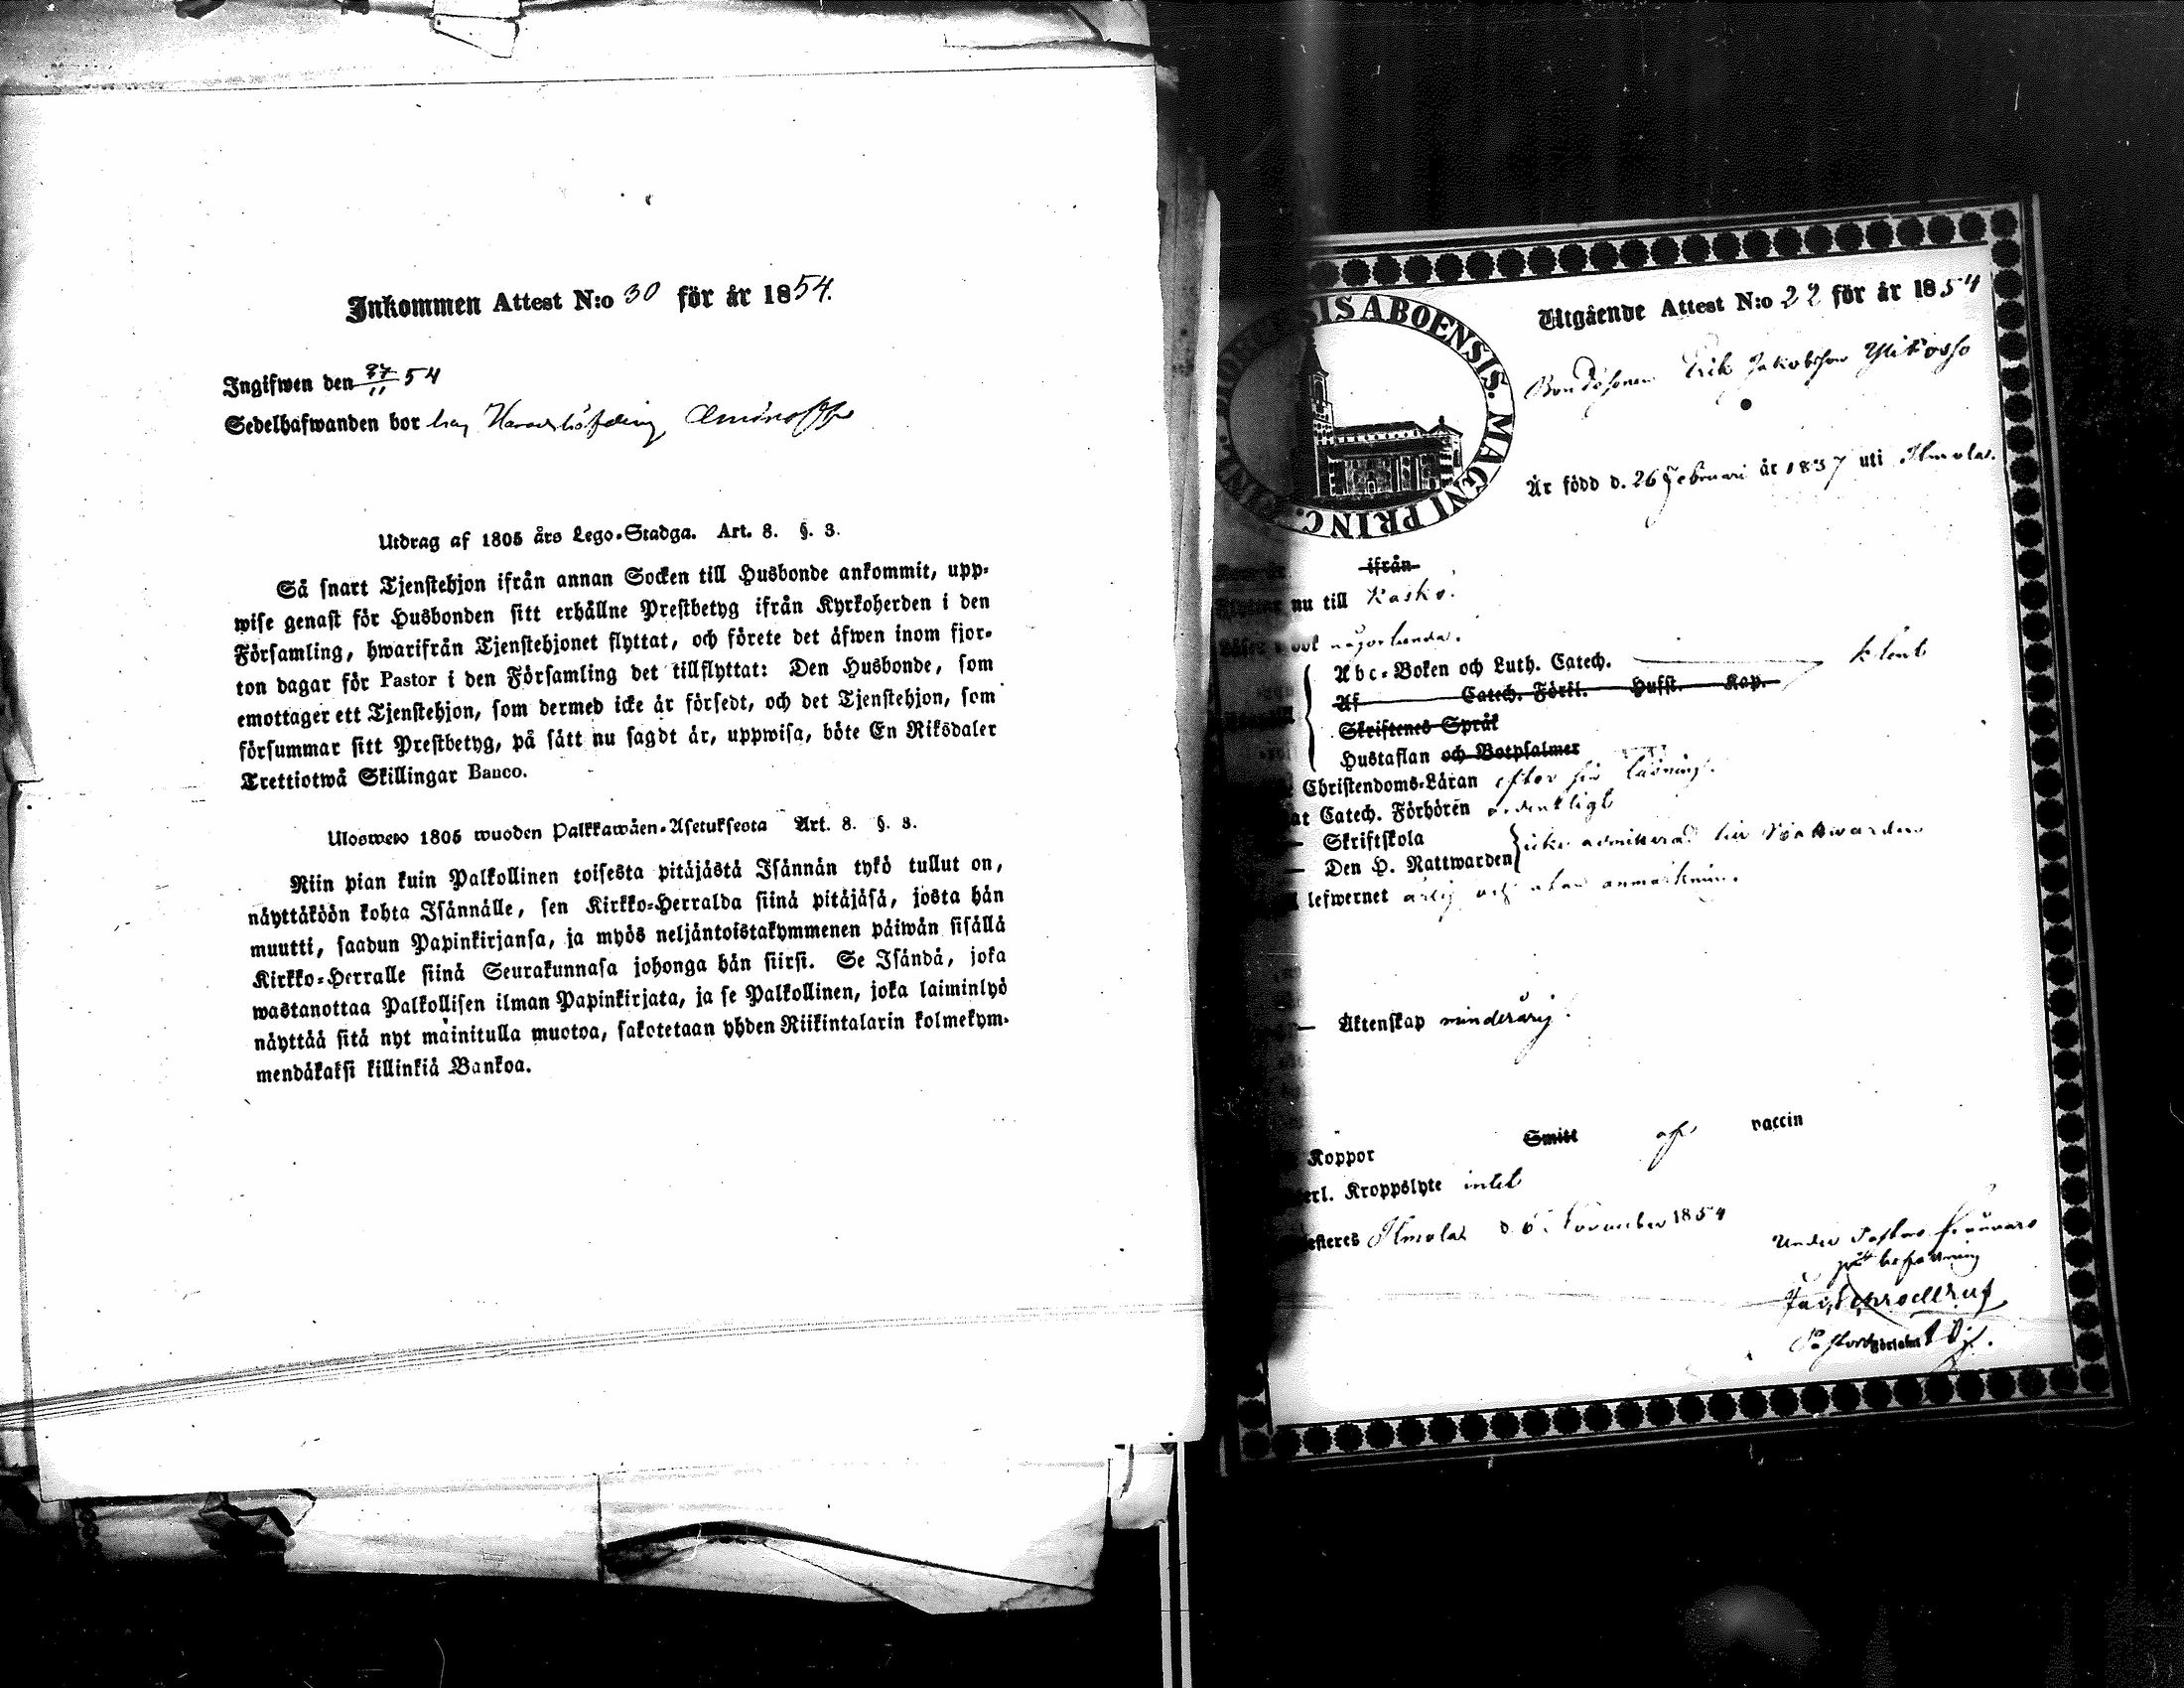 Inkommen Attest N:o 30 för år 1854.
Ingifwen den 27/11 54
Sedelhafwanden bor hos Häradshöfding Aminoff
Utdrag af 1805 års Lego-Stadga. Art. 8. §. 3.
Så snart Tjenstehjon ifrån annan Socken till Husbonde ankommit, upp-
wise genast för Husbonden sitt erhållne Prestbetyg ifrån Kyrkoherden i den
Församling, hwarifrån Tjenstehjonet flyttat, och förete det äfwen inom fjor-
ton dagar för Pastor i den Församling det tillflyttat: Den Husbonde, som
emottager ett Tjenstehjon, som dermed icke är försedt, och det Tjenstehjon, som
försummar sitt Prestbetyg, på sätt nu sagdt är, uppwisa, böte En Riksdaler
Trettiotwå Skillingar Banco.
Ulosweto 1805 wuoden Palkkawäen-Asetuksesta Art. 8. §. 3.
Niin pian kuin Palkollinen toisesta pitäjästä Isännän tykö tullut on,
näyttäköön kohta Isännälle, sen Kirkko-Herralda siinä pitäjäsä, josta hän
muutti, saadun Papinkirjansa, ja myös neljäntoistakymmenen päiwän sisällä
Kirkko-Herralle siinä Seurakunnasa johonga hän siirsi. Se Isändä, joka
wastanottaa Palkollisen ilman Papinkirjata, ja se Palkollinen, joka laiminlyö
näyttää sitä nyt mainitulla muotoa, sakotetaan yhden Riikintalarin kolmekym-
mendäkaksi killinkiä Bankoa.
IS ABOENSIS. MAGNI PRINC. FINL.
Utgående Attest N:o 22 för år 1854
Bondesonen Erik Jakobsson
Är född d. 26 Februari år 1837 uti Ilmola.
ifrån
nu till Kaskö.
bok någorlunda.
Abc-Boken och Luth. Catech.
Af Catech. Förkl. Hufst. Kap.
Skriftenes Språk
Hustaflan och Botpsalmer
Christendoms-Läran efter sin läsning.
at Catech. Förhören ordentligt
Skriftskola
Den H. Nattwarden icke admitterad till Nattwarden
lefwernet ärlig och utan anmärkning.
Äktenskap minderårig.
Koppor Smitt af vaccin
erl. Kroppslyte intet
esteres Ilmola d. 6. November 1854
Under Pastors frånvaro
på befallning